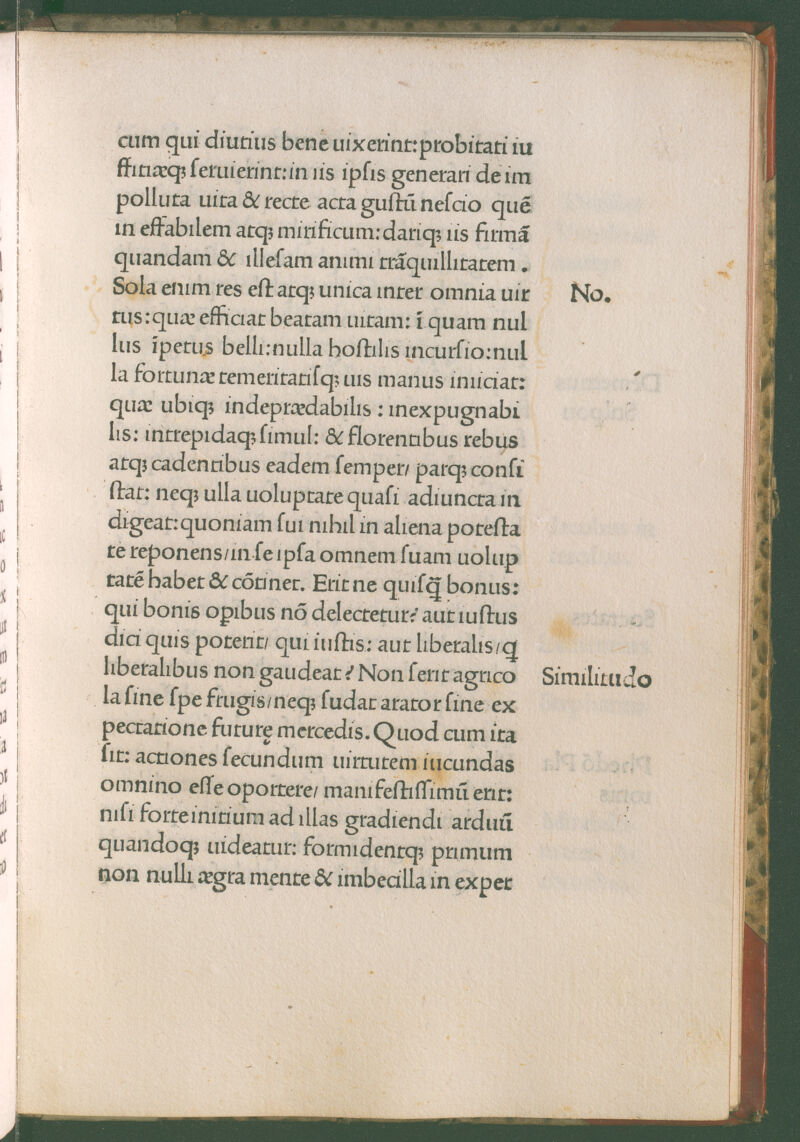 cum qui diutius bene uixerint: probitati iu
ſtitiæq; ſeruierint: in iis ipſis generari de im
polluta uita & recte acta guſtū neſcio quē
in effabilem atq; mirificum: dariq; iis firmā
quandam & illeſam animi trāquillitatem.
Sola enim res eſt atq; unica inter omnia uir
No.
tus: quæ efficiat beatam uitam: ī quam nul
lus īpetus belli: nulla hoſtilis incurſio: nul
la fortunæ temeritatiſq; uis manus iniiciat:
quæ ubiq; indeprædabilis: inexpugnabi
lis: intrepidaq; ſimul: & florentibus rebus
atq; cadentibus eadem ſemper/ parq; conſi
ſtat: neq; ulla uoluptate quaſi adiuncta in
digeat: quoniam ſui nihil in aliena poteſta
te reponens/ in ſe ipſa omnem ſuam uolup
tatē habet & cōtinet. Erit ne quiſq̄ bonus:
qui bonis opibus nō delectetur? aut iuſtus
dici quis poterit/ qui iuſtis: aut liberalis/ q
liberalibus non gaudeat? Non ſerit agrico
Similitudo
la ſine ſpe frugis/ neq; ſudat arator ſine ex
pectatione futurę mercedis. Quod cum ita
ſit: actiones ſecundum uirtutem iucundas
omnino eſſe oportere/ manifeſtiſſimū erit:
niſi forte initium ad illas gradiendi arduū
quandoq; uideatur: formidentq; primum
non nulli ægra mente & imbecilla in exper